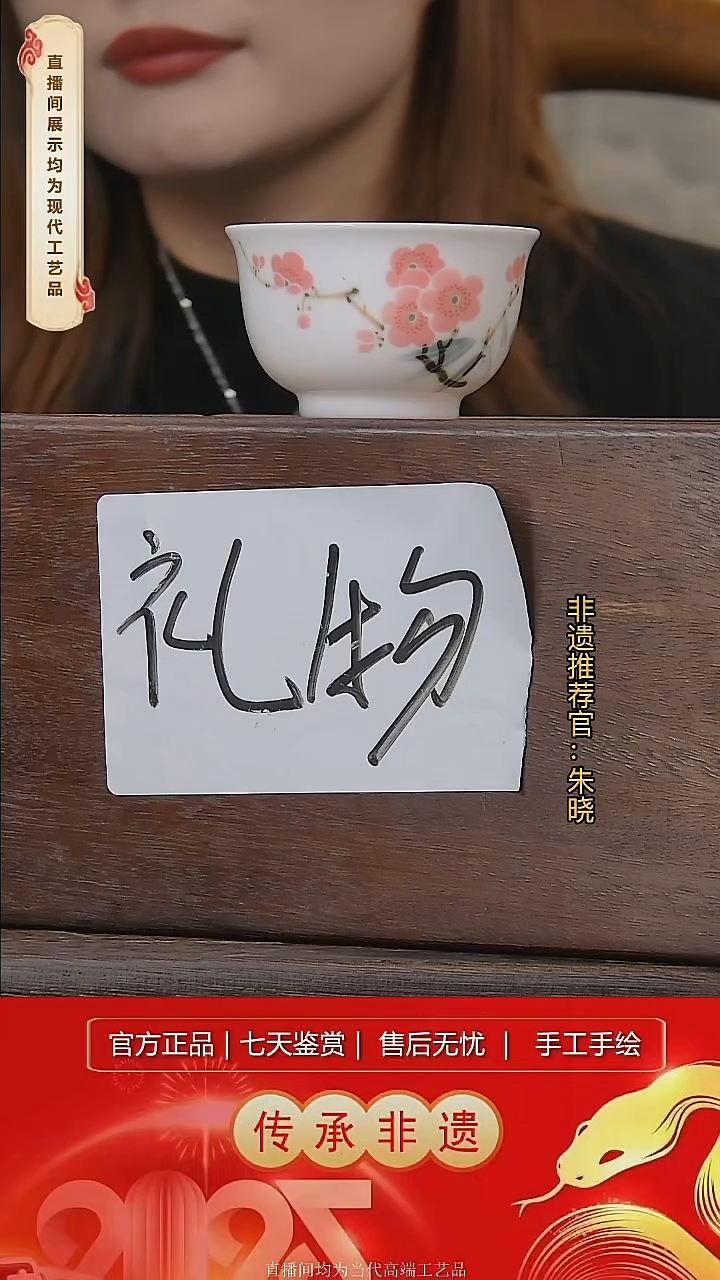 直播间展示均为现代工艺品
礼物
非遗推荐官：朱晓
官方正品 | 七天鉴赏 | 售后无忧 | 手工手绘
传承非遗
2025
直播间均为当代高端工艺品